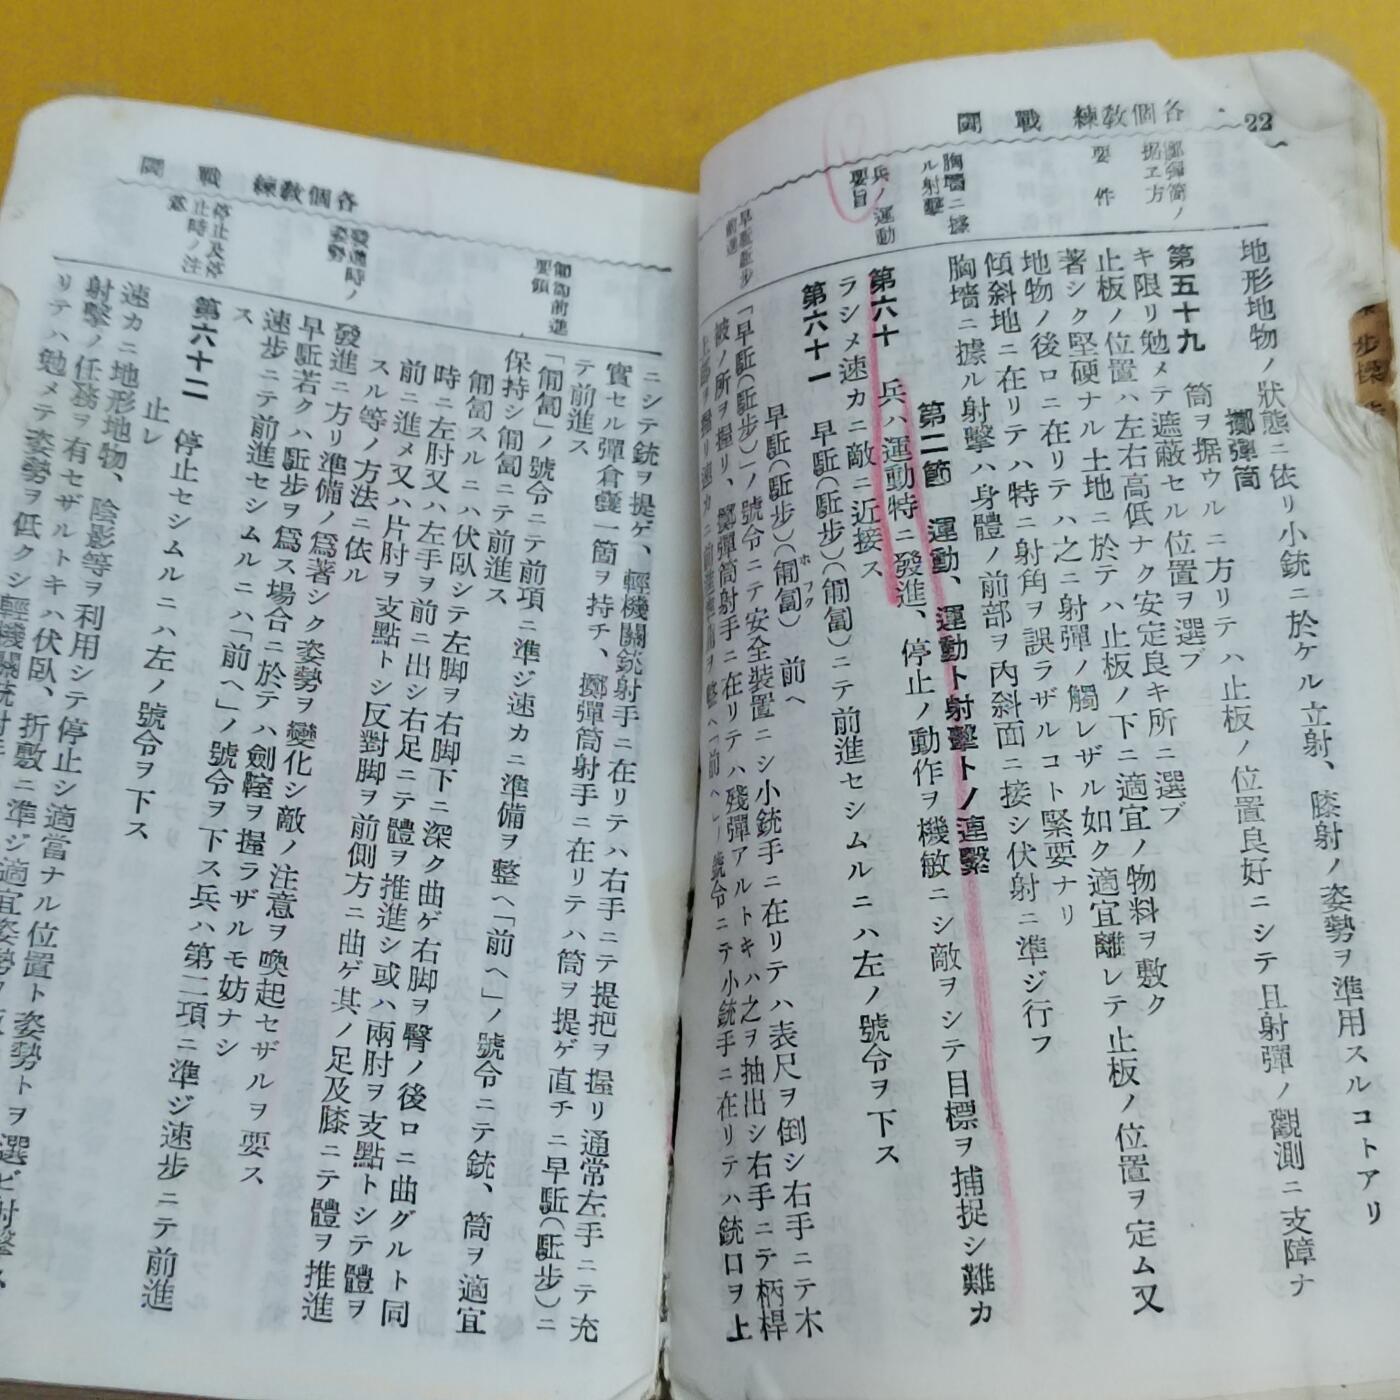 22
各個教練 戰鬪
擲彈筒ノ据ヱ方
要件
胸墻ニ據ル射擊
兵ノ運動要旨
早駈駈步前進
地形地物ノ狀態ニ依リ小銃ニ於ケル立射、膝射ノ姿勢ヲ準用スルコトアリ
擲彈筒
第五十九 筒ヲ据ウルニ方リテハ止板ノ位置良好ニシテ且射彈ノ觀測ニ支障ナ
キ限リ勉メテ遮蔽セル位置ヲ選ブ
止板ノ位置ハ左右高低ナク安定良キ所ニ選ブ
著シク堅硬ナル土地ニ於テハ止板ノ下ニ適宜ノ物料ヲ敷ク
地物ノ後ロニ在リテハ之ニ射彈ノ觸レザル如ク適宜離レテ止板ノ位置ヲ定ム又
傾斜地ニ在リテハ特ニ射角ヲ誤ラザルコト緊要ナリ
胸墻ニ據ル射擊ハ身體ノ前部ヲ內斜面ニ接シ伏射ニ準ジ行フ
第二節 運動、運動ト射擊トノ連繫
第六十 兵ハ運動特ニ發進、停止ノ動作ヲ機敏ニシ敵ヲシテ目標ヲ捕捉シ難カ
ラシメ速カニ敵ニ近接ス
第六十一 早駈(駈步)(匍匐)ニテ前進セシムルニハ左ノ號令ヲ下ス
早駈(駈步)(匍匐) 前ヘ
ホフク
「早駈(駈步)」ノ號令ニテ安全裝置ニシ小銃手ニ在リテハ表尺ヲ倒シ右手ニテ木
被ノ所ヲ握リ、擲彈筒射手ニ在リテハ殘彈アルトキハ之ヲ抽出シ右手ニテ柄桿
上部ヲ握リ速カニ前進準備ヲ整ヘ「前ヘ」ノ號令ニテ小銃手ニ在リテハ銃口ヲ上
各個教練 戰鬪
匍匐前進要領
發進時ノ姿勢
停止及停止時ノ注意
ニシテ銃ヲ提ゲ、輕機關銃射手ニ在リテハ右手ニテ提把ヲ握リ通常左手ニテ充
實セル彈倉囊一箇ヲ持チ、擲彈筒射手ニ在リテハ筒ヲ提ゲ直チニ早駈(駈步)ニ
テ前進ス
「匍匐」ノ號令ニテ前項ニ準ジ速カニ準備ヲ整ヘ「前ヘ」ノ號令ニテ銃、筒ヲ適宜
保持シ匍匐ニテ前進ス
匍匐スルニハ伏臥シテ左脚ヲ右脚下ニ深ク曲ゲ右脚ヲ臀ノ後ロニ曲グルト同
時ニ左肘又ハ左手ヲ前ニ出シ右足ニテ體ヲ推進シ或ハ兩肘ヲ支點トシテ體ヲ
前ニ進メ又ハ片肘ヲ支點トシ反對脚ヲ前側方ニ曲ゲ其ノ足及膝ニテ體ヲ推進
スル等ノ方法ニ依ル
發進ニ方リ準備ノ爲著シク姿勢ヲ變化シ敵ノ注意ヲ喚起セザルヲ要ス
早駈若クハ駈步ヲ爲ス場合ニ於テハ劍鞘ヲ握ラザルモ妨ナシ
速步ニテ前進セシムルニハ「前ヘ」ノ號令ヲ下ス兵ハ第二項ニ準ジ速步ニテ前進
ス
第六十二 停止セシムルニハ左ノ號令ヲ下ス
止レ
速カニ地形地物、陰影等ヲ利用シテ停止シ適當ナル位置ト姿勢トヲ選ビ射擊ス
射擊ノ任務ヲ有セザルトキハ伏臥、折敷ニ準ジ適宜姿勢ヲ
リテハ勉メテ姿勢ヲ低クシ輕機關銃射手